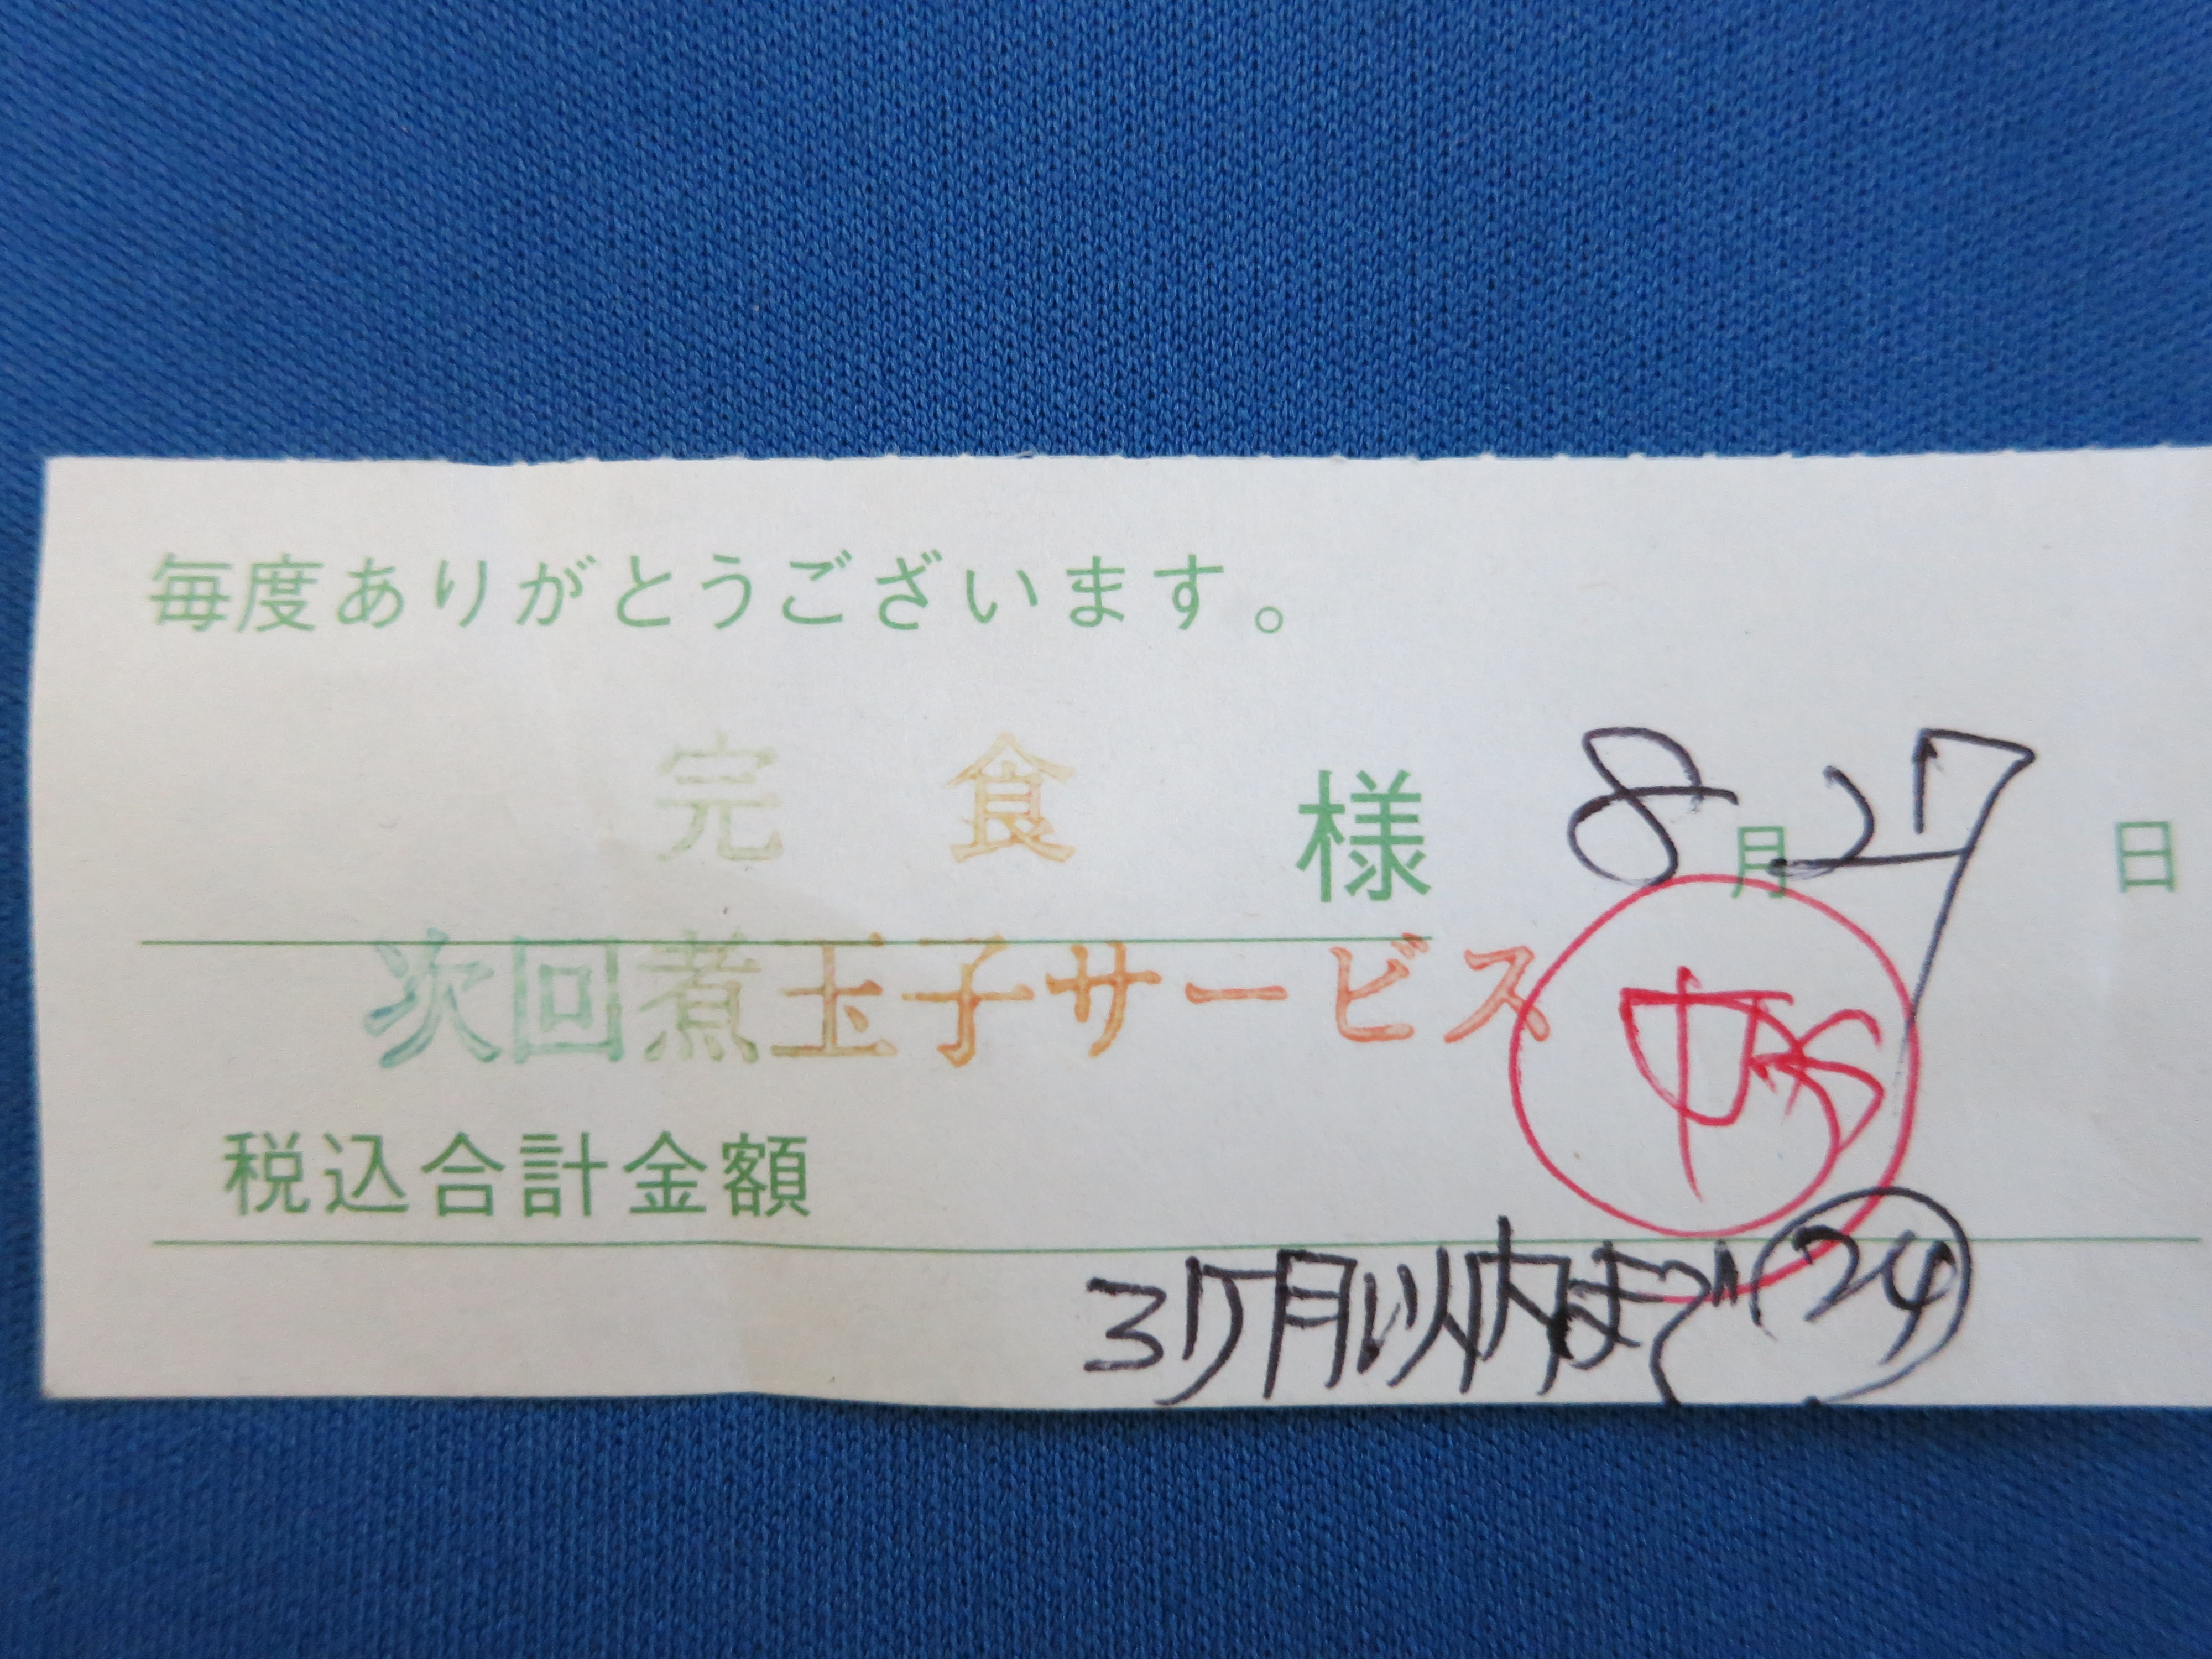 毎度ありがとうございます。
完 食 様 8月27日
次回煮玉子サービス
税込合計金額
3ヶ月以内まで 24